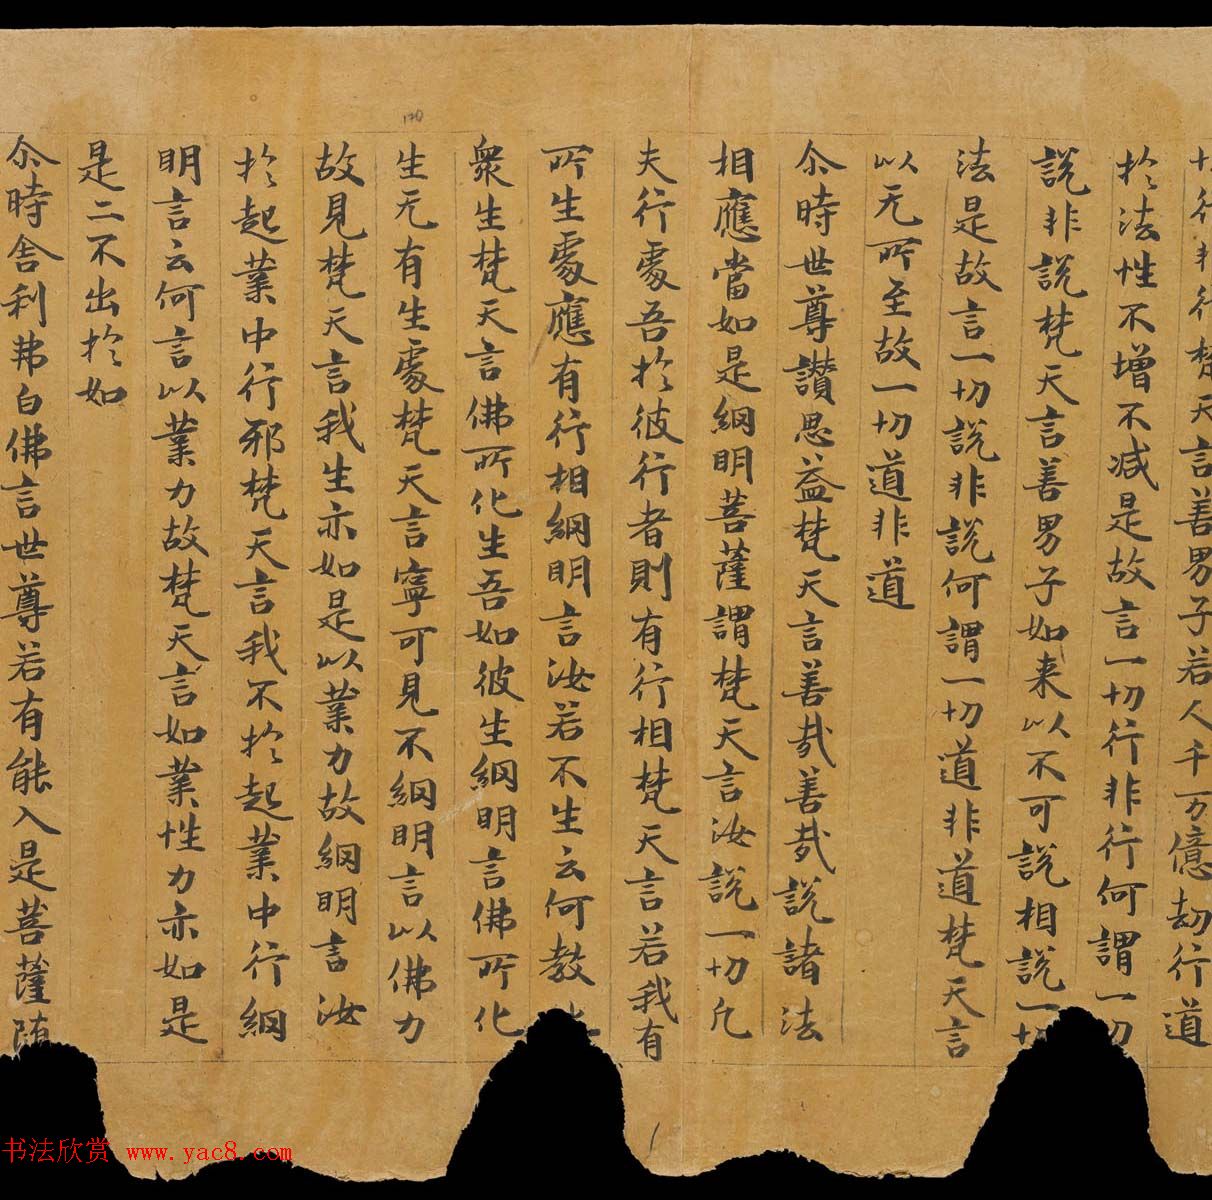 行非行梵天言善男子若人千万億劫行道
扵法性不增不减是故言一切行非行何謂一切
說非說梵天言善男子如来以不可說相說一切
法是故言一切說非說何謂一切道非道梵天言
以无所至故一切道非道
尒時世尊讃思益梵天言善㢤善㢤說諸法
相應當如是網明菩薩謂梵天言汝說一切凡
夫行處吾扵彼行者則有行相梵天言若我有
所生處應有行相網明言汝若不生云何教化
衆生梵天言佛所化生吾如彼生網明言佛所化
生无有生處梵天言寧可見不網明言以佛力
故見梵天言我生亦如是以業力故網明言汝
扵起業中行邪梵天言我不扵起業中行網
明言云何言以業力故梵天言如業性力亦如是
是二不出扵如
尒時舎利弗白佛言世尊若有能入是菩薩随
170
书法欣赏 www.yac8.com